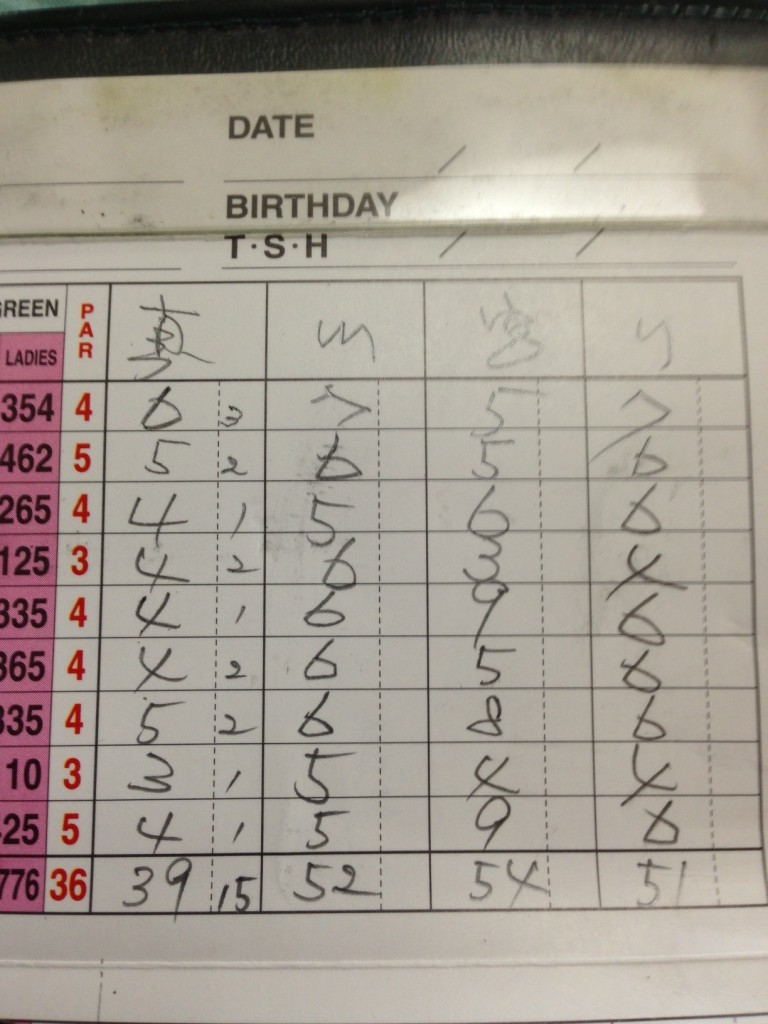 DATE / /
BIRTHDAY
T·S·H / /
GREEN PAR
LADIES
354 4 6 3 7 5 7
462 5 5 2 6 5 6
265 4 4 1 5 6 6
125 3 4 2 6 3 4
335 4 4 1 6 9 6
365 4 4 2 6 5 6
335 4 5 2 6 8 6
10 3 3 1 5 4 4
25 5 4 1 5 9 6
776 36 39 15 52 54 51